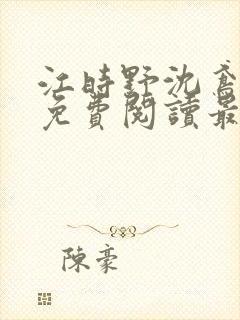 江時野沈鳶
免費閱讀最
陳豪